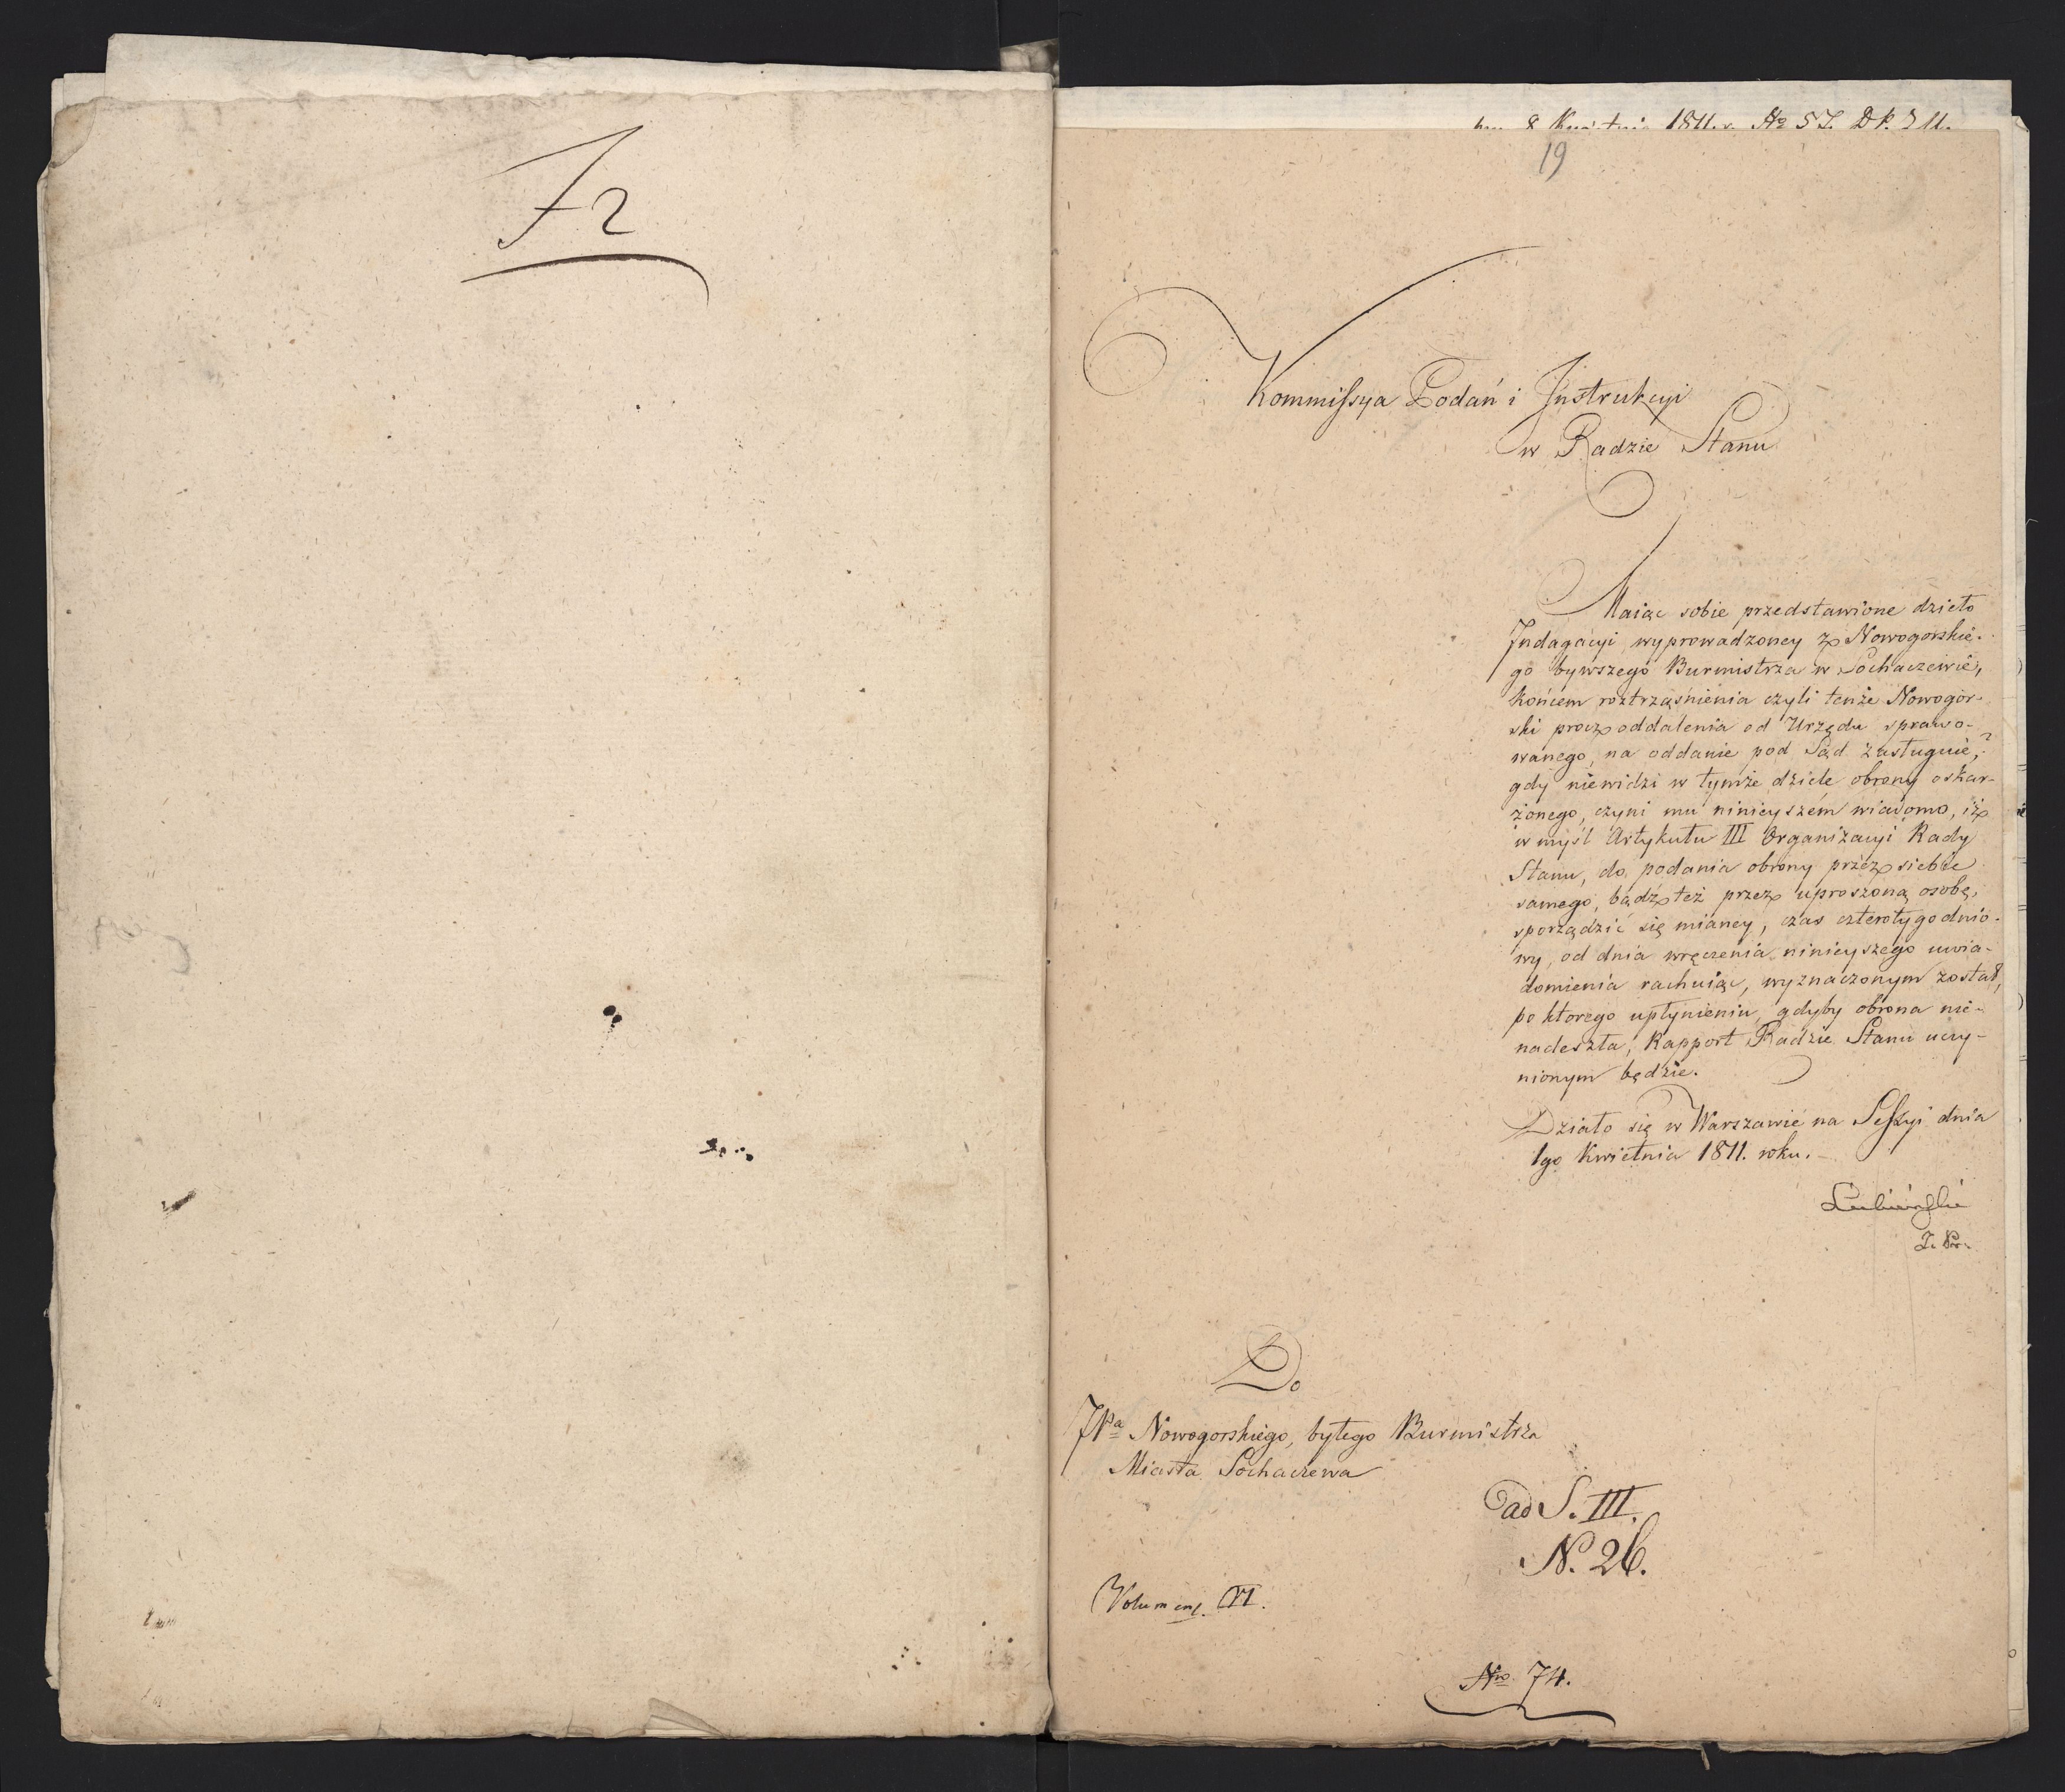 72
8 Kwietnia 1811. r. No 57. Dk. 311.
19
Kommissya Podań i Instrukcyi
w Radzie Stanu
Maiąc sobie przedstawione dzieło
Indagacyi wyprowadzoney z Nowogorskie-
go bywszego Burmistrza w Sochaczewie,
końcem roztrząśnienia czyli tenże Nowogor-
ski procz oddalenia od Urzędu sprawo-
wanego, na oddanie pod Sąd zasługuie,?
gdy niewidzi w tymże dziele obrony oskar-
żonego, czyni mu ninieyszém wiadomo, iż
w myśl Artykułu III Organizacyi Rady
Stanu, do podania obrony przez siebie
samego, bądź też przez uproszoną osobę,
sporządzić się mianey, czas czterotygodnio-
wy, od dnia wręczenia ninieyszego uwia-
domienia rachuiąc, wyznaczonym został,
po ktorego upłynieniu, gdyby obrona nie-
nadeszła, Rapport Radzie Stanu uczy-
nionym będzie.
Działo się w Warszawie na Sessyi dnia
1go Kwietnia 1811. roku.
Łubieński
Do
JPa Nowogorskiego, byłego Burmistrza
Miasta Sochaczewa
ad S. III.
N. 26.
Volumen. VI.
Nro 74.